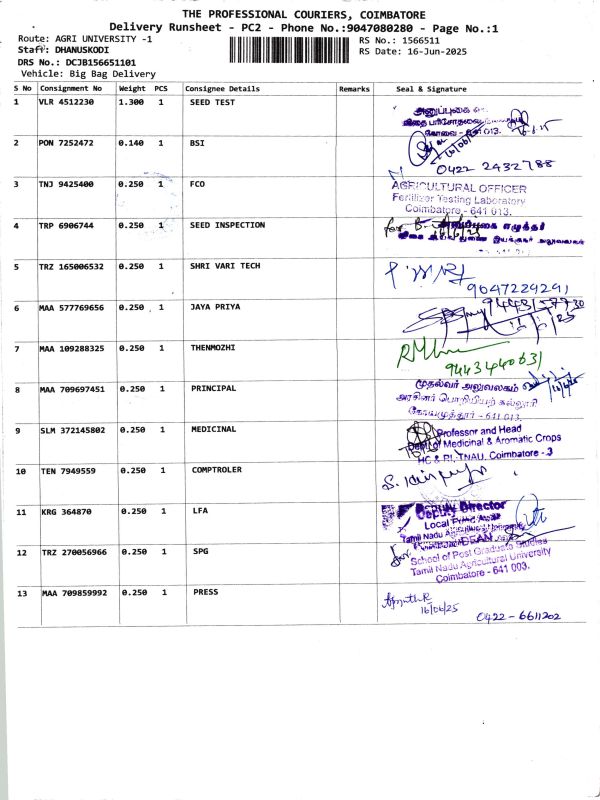 THE PROFESSIONAL COURIERS, COIMBATORE
Delivery Runsheet - PC2 - Phone No.:9047080280 - Page No.:1
Route: AGRI UNIVERSITY -1 RS No.: 1566511
Staff: DHANUSKODI RS Date: 16-Jun-2025
DRS No.: DCJB156651101
Vehicle: Big Bag Delivery
S No Consignment No Weight PCS Consignee Details Remarks Seal & Signature
1 VLR 4512230 1.300 1 SEED TEST
கோவை - 641 013.
2 PON 7252472 0.140 1 BSI
0422 2432788
3 TNJ 9425400 0.250 1 FCO
AGRICULTURAL OFFICER
Fertilizer Testing Laboratory
Coimbatore - 641 013.
4 TRP 6906744 0.250 1 SEED INSPECTION
5 TRZ 165006532 0.250 1 SHRI VARI TECH
9047229291
6 MAA 577769656 0.250 1 JAYA PRIYA
9443157730
7 MAA 109288325 0.250 1 THENMOZHI
9443440631
8 MAA 709697451 0.250 1 PRINCIPAL
முதல்வர் அலுவலகம்
அரசினர் பொறியியற் கல்லூரி
கோயமுத்தூர் - 641 013.
9 SLM 372145802 0.250 1 MEDICINAL
Professor and Head
Dept. of Medicinal & Aromatic Crops
HC & RI, TNAU, Coimbatore - 3
10 TEN 7949559 0.250 1 COMPTROLER
11 KRG 364870 0.250 1 LFA
Deputy Director
Local Fund Audit
Tamil Nadu Agricultural University
12 TRZ 270056966 0.250 1 SPG
DEAN
School of Post Graduate Studies
Tamil Nadu Agricultural University
Coimbatore - 641 003.
13 MAA 709859992 0.250 1 PRESS
16/06/25
0422 - 6611202